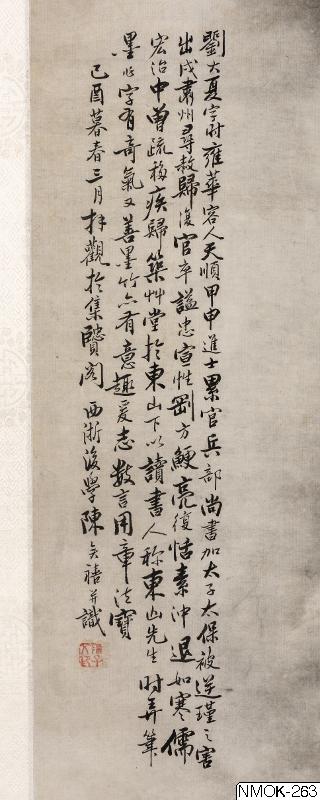 劉大夏字時雍華容人天順甲申進士累官兵部尚書加太子太保被逆瑾之害
出戍肅州尋赦歸復官卒謚忠宣性剛方鯁亮復恬素沖退如寒儒
宏治中曾疏移疾歸築艸堂於東山下以讀書人稱東山先生時弄筆
墨作字有奇氣又善墨竹亦有意趣爰志數言用章法寶
己酉暮春三月拜觀於集賢閣 西浙後學陳 禧并識
NMOK-263